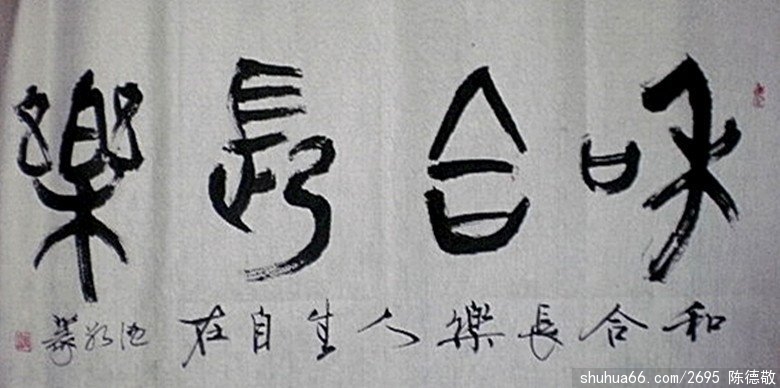 和合長樂
和合長樂人生自在
shuhua66.com/2695 陈德敬